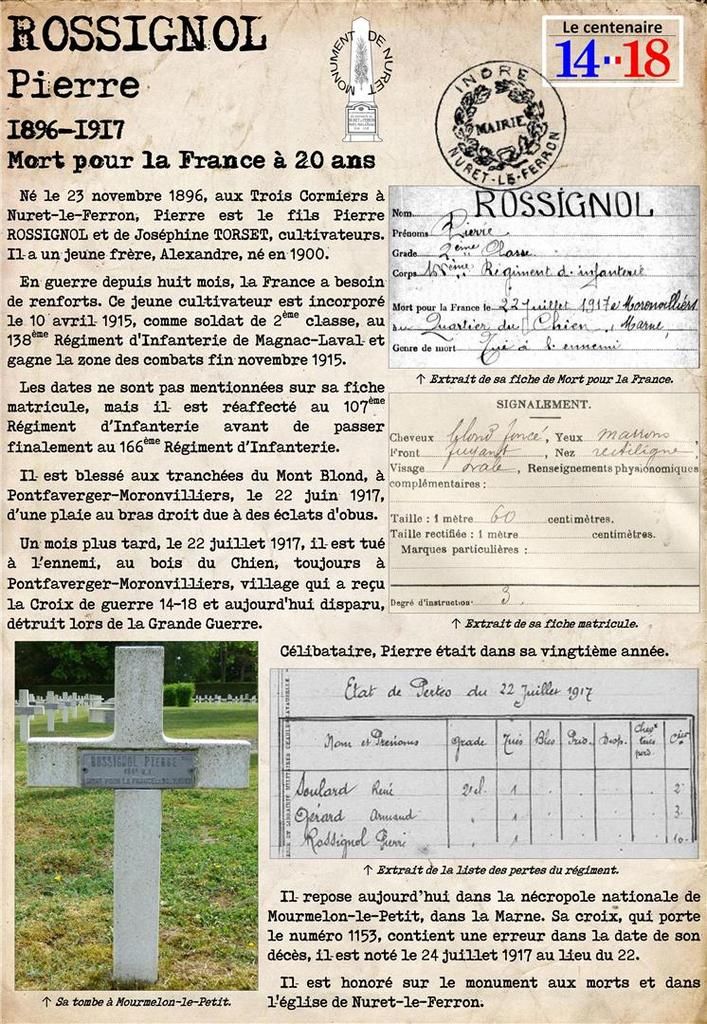 ROSSIGNOL
Pierre
1896-1917
Mort pour la France à 20 ans
MONUMENT DE NURET
INDRE
MAIRIE
NURET-LE-FERRON
Le centenaire
14-18
Né le 23 novembre 1896, aux Trois Cormiers à
Nuret-le-Ferron, Pierre est le fils Pierre
ROSSIGNOL et de Joséphine TORSET, cultivateurs.
Il a un jeune frère, Alexandre, né en 1900.
En guerre depuis huit mois, la France a besoin
de renforts. Ce jeune cultivateur est incorporé
le 10 avril 1915, comme soldat de 2ème classe, au
138ème Régiment d'Infanterie de Magnac-Laval et
gagne la zone des combats fin novembre 1915.
Les dates ne sont pas mentionnées sur sa fiche
matricule, mais il est réaffecté au 107ème
Régiment d'Infanterie avant de passer
finalement au 166ème Régiment d'Infanterie.
Il est blessé aux tranchées du Mont Blond, à
Pontfaverger-Moronvilliers, le 22 juin 1917,
d'une plaie au bras droit due à des éclats d'obus.
Un mois plus tard, le 22 juillet 1917, il est tué
à l'ennemi, au bois du Chien, toujours à
Pontfaverger-Moronvilliers, village qui a reçu
la Croix de guerre 14-18 et aujourd'hui disparu,
détruit lors de la Grande Guerre.
Nom ROSSIGNOL
Prénoms Pierre
Grade 2ème Classe
Corps Régiment d'infanterie
Mort pour la France le 22 juillet 1917 à Moronvilliers
au Quartier du Chien, Marne,
Genre de mort Tué à l'ennemi
↑ Extrait de sa fiche de Mort pour la France.
SIGNALEMENT.
Cheveux blond foncé, Yeux marrons,
Front fuyant, Nez rectiligne,
Visage ovale, Renseignements physionomiques
complémentaires :
Taille : 1 mètre 60 centimètres.
Taille rectifiée : 1 mètre centimètres.
Marques particulières :
Degré d'instruction 3
↑ Extrait de sa fiche matricule.
Célibataire, Pierre était dans sa vingtième année.
Etat de Pertes du 22 Juillet 1917
Nom et Prénoms Grade Tués Bles Disp. Cie
Soulard René 2el. 1 2
Gérard Armand 1 3
Rossignol Pierre 1 10
↑ Extrait de la liste des pertes du régiment.
ROSSIGNOL PIERRE
MORT POUR LA FRANCE
↑ Sa tombe à Mourmelon-le-Petit.
Il repose aujourd'hui dans la nécropole nationale de
Mourmelon-le-Petit, dans la Marne. Sa croix, qui porte
le numéro 1153, contient une erreur dans la date de son
décès, il est noté le 24 juillet 1917 au lieu du 22.
Il est honoré sur le monument aux morts et dans
l'église de Nuret-le-Ferron.